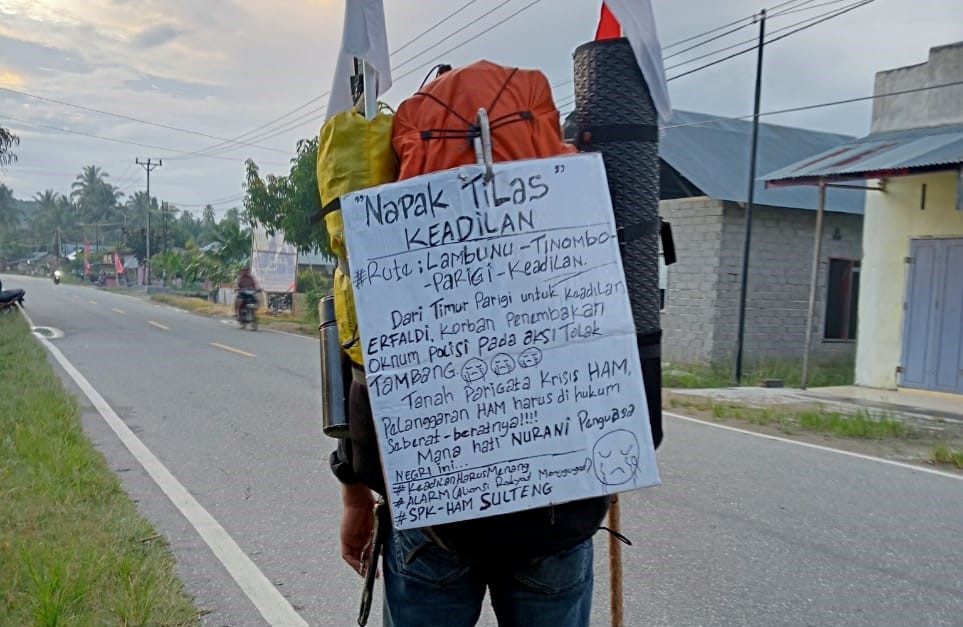 "NAPAK TILAS"
KEADILAN
#Rute : LAMBUNU - TINOMBO -
- PARIGI - KEADILAN.
Dari Timur Parigi untuk Keadilan
ERFALDI, Korban Penembakan
OKNUM POLISI PADA AKSI TOLAK
TAMBANG.
Tanah Parigata Krisis HAM,
Pelanggaran HAM harus di hukum
Seberat-beratnya!!!!
Mana hati NURANI Penguasa
NEGRI ini...
#KeadilanHarusMenang
#ALARM (Aliansi Rakyat Menggugat)
#SPK-HAM SULTENG